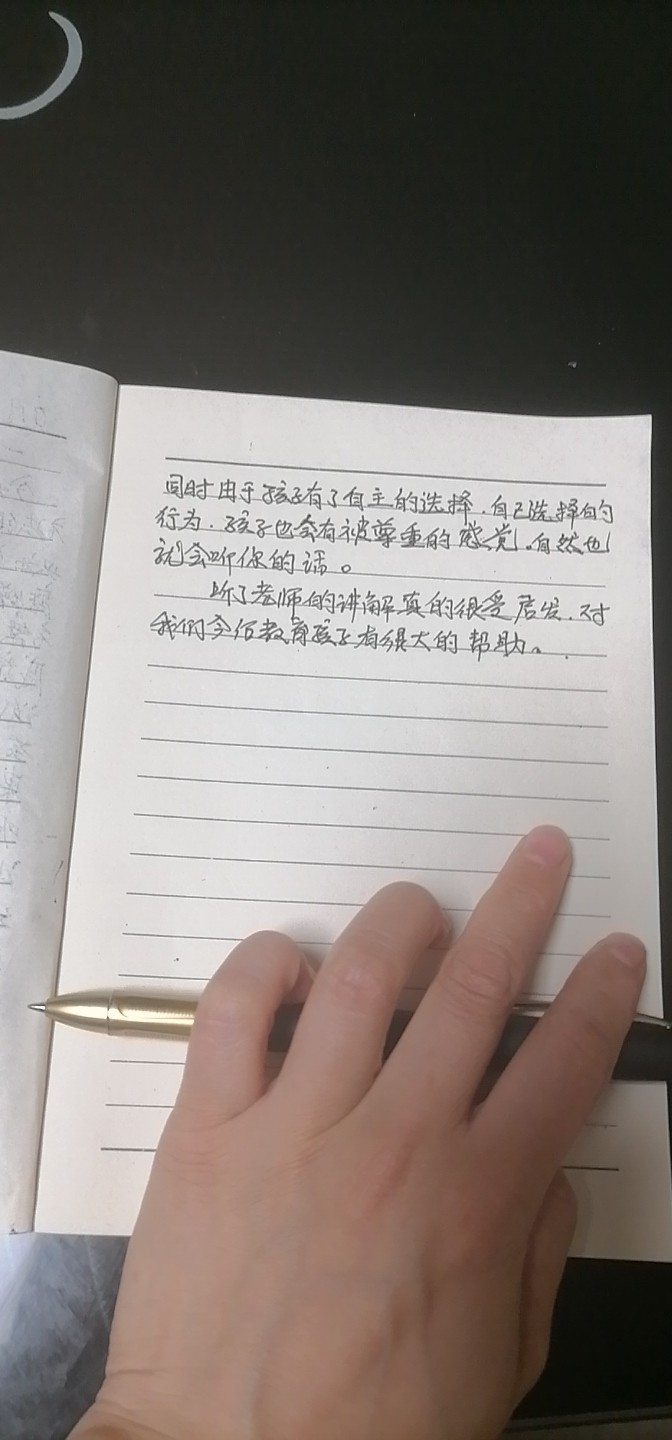 同时由于孩子有了自主的选择.自己选择的
行为.孩子也会有被尊重的感觉。自然也
就会听你的话。
听了老师的讲解真的很受启发.对
我们今后教育孩子有很大的帮助。